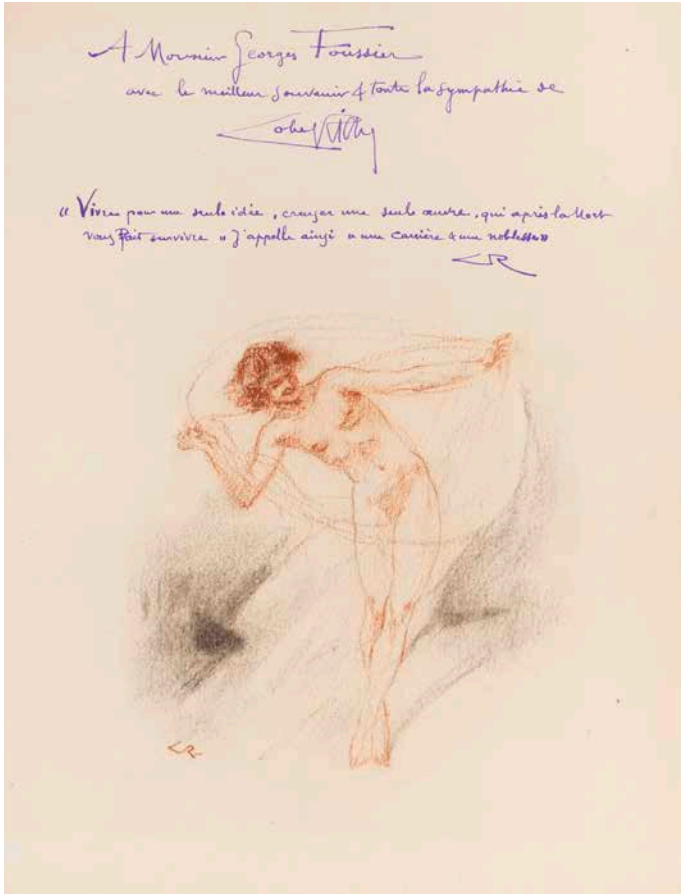 A Monsieur Georges Foussier
avec le meilleur souvenir & toute la sympathie de
Lobel Riche
« Vivre pour une seule idée, creuser une seule œuvre, qui après la Mort
vous fait survivre « J'appelle ainsi » une carrière & une noblesse »
LR
LR